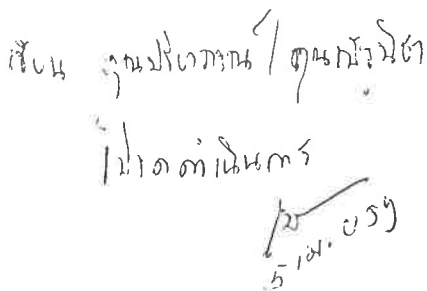 เรียน คุณปริยาภรณ์ / คุณ
โปรดดำเนินการ
5 เม.ย. 59